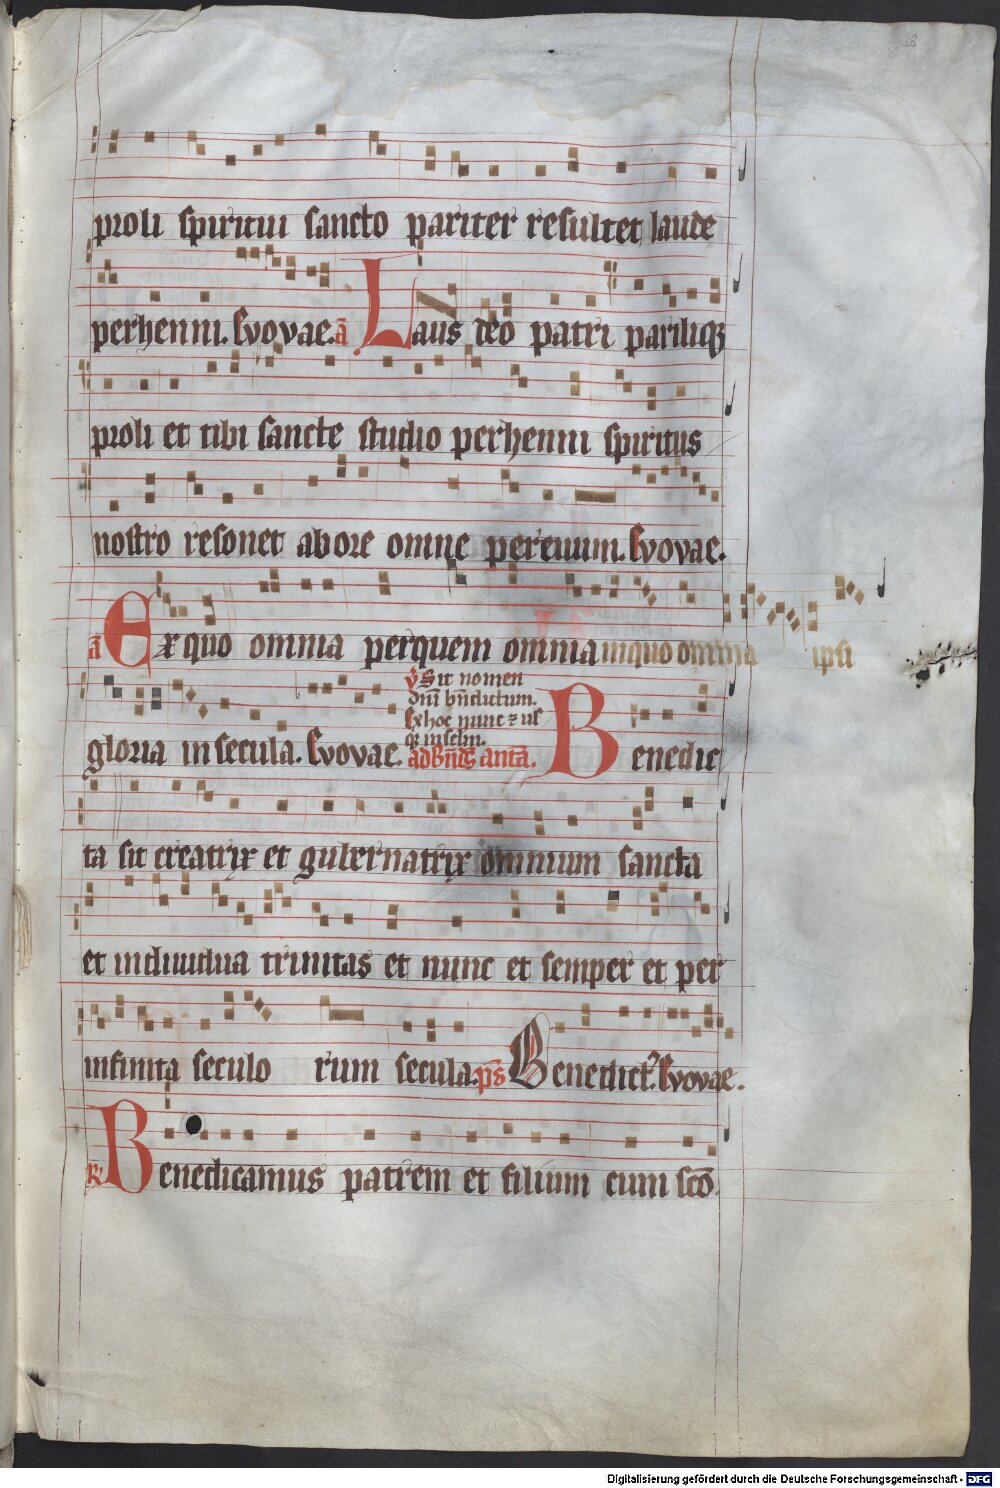 38
proli spiritui sancto pariter resultet laude
perhenni. Evovae. a̅ Laus deo patri pariliq3
proli et tibi sancte studio perhenni spiritus
nostro resonet abore omne per euum. Evovae.
a̅ Ex quo omnia per quem omnia in quo omnia ipsi
gloria in secula. Evovae. v̅ Sit nomen
dn̅i b̅ndictum.
Ex hoc nunc et us
q3 in sclm̅.
ad Bn̅dc̅ anta̅. Benedic
ta sit creatrix et gubernatrix omnium sancta
et indiuidua trinitas et nunc et semper et per
infinita seculo rum secula. ps̅ Benedict9. Evovae.
R. Benedicamus patrem et filium cum sco̅.
Digitalisierung gefördert durch die Deutsche Forschungsgemeinschaft - DFG